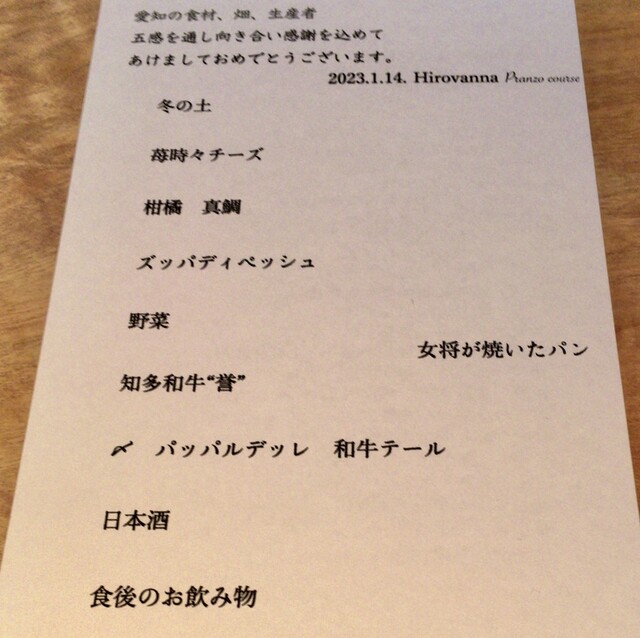 愛知の食材、畑、生産者
五感を通し向き合い感謝を込めて
あけましておめでとうございます。
2023.1.14. Hirovanna Pranzo course
冬の土
苺時々チーズ
柑橘　真鯛
ズッパディペッシュ
野菜
女将が焼いたパン
知多和牛“誉”
〆　パッパルデッレ　和牛テール
日本酒
食後のお飲み物